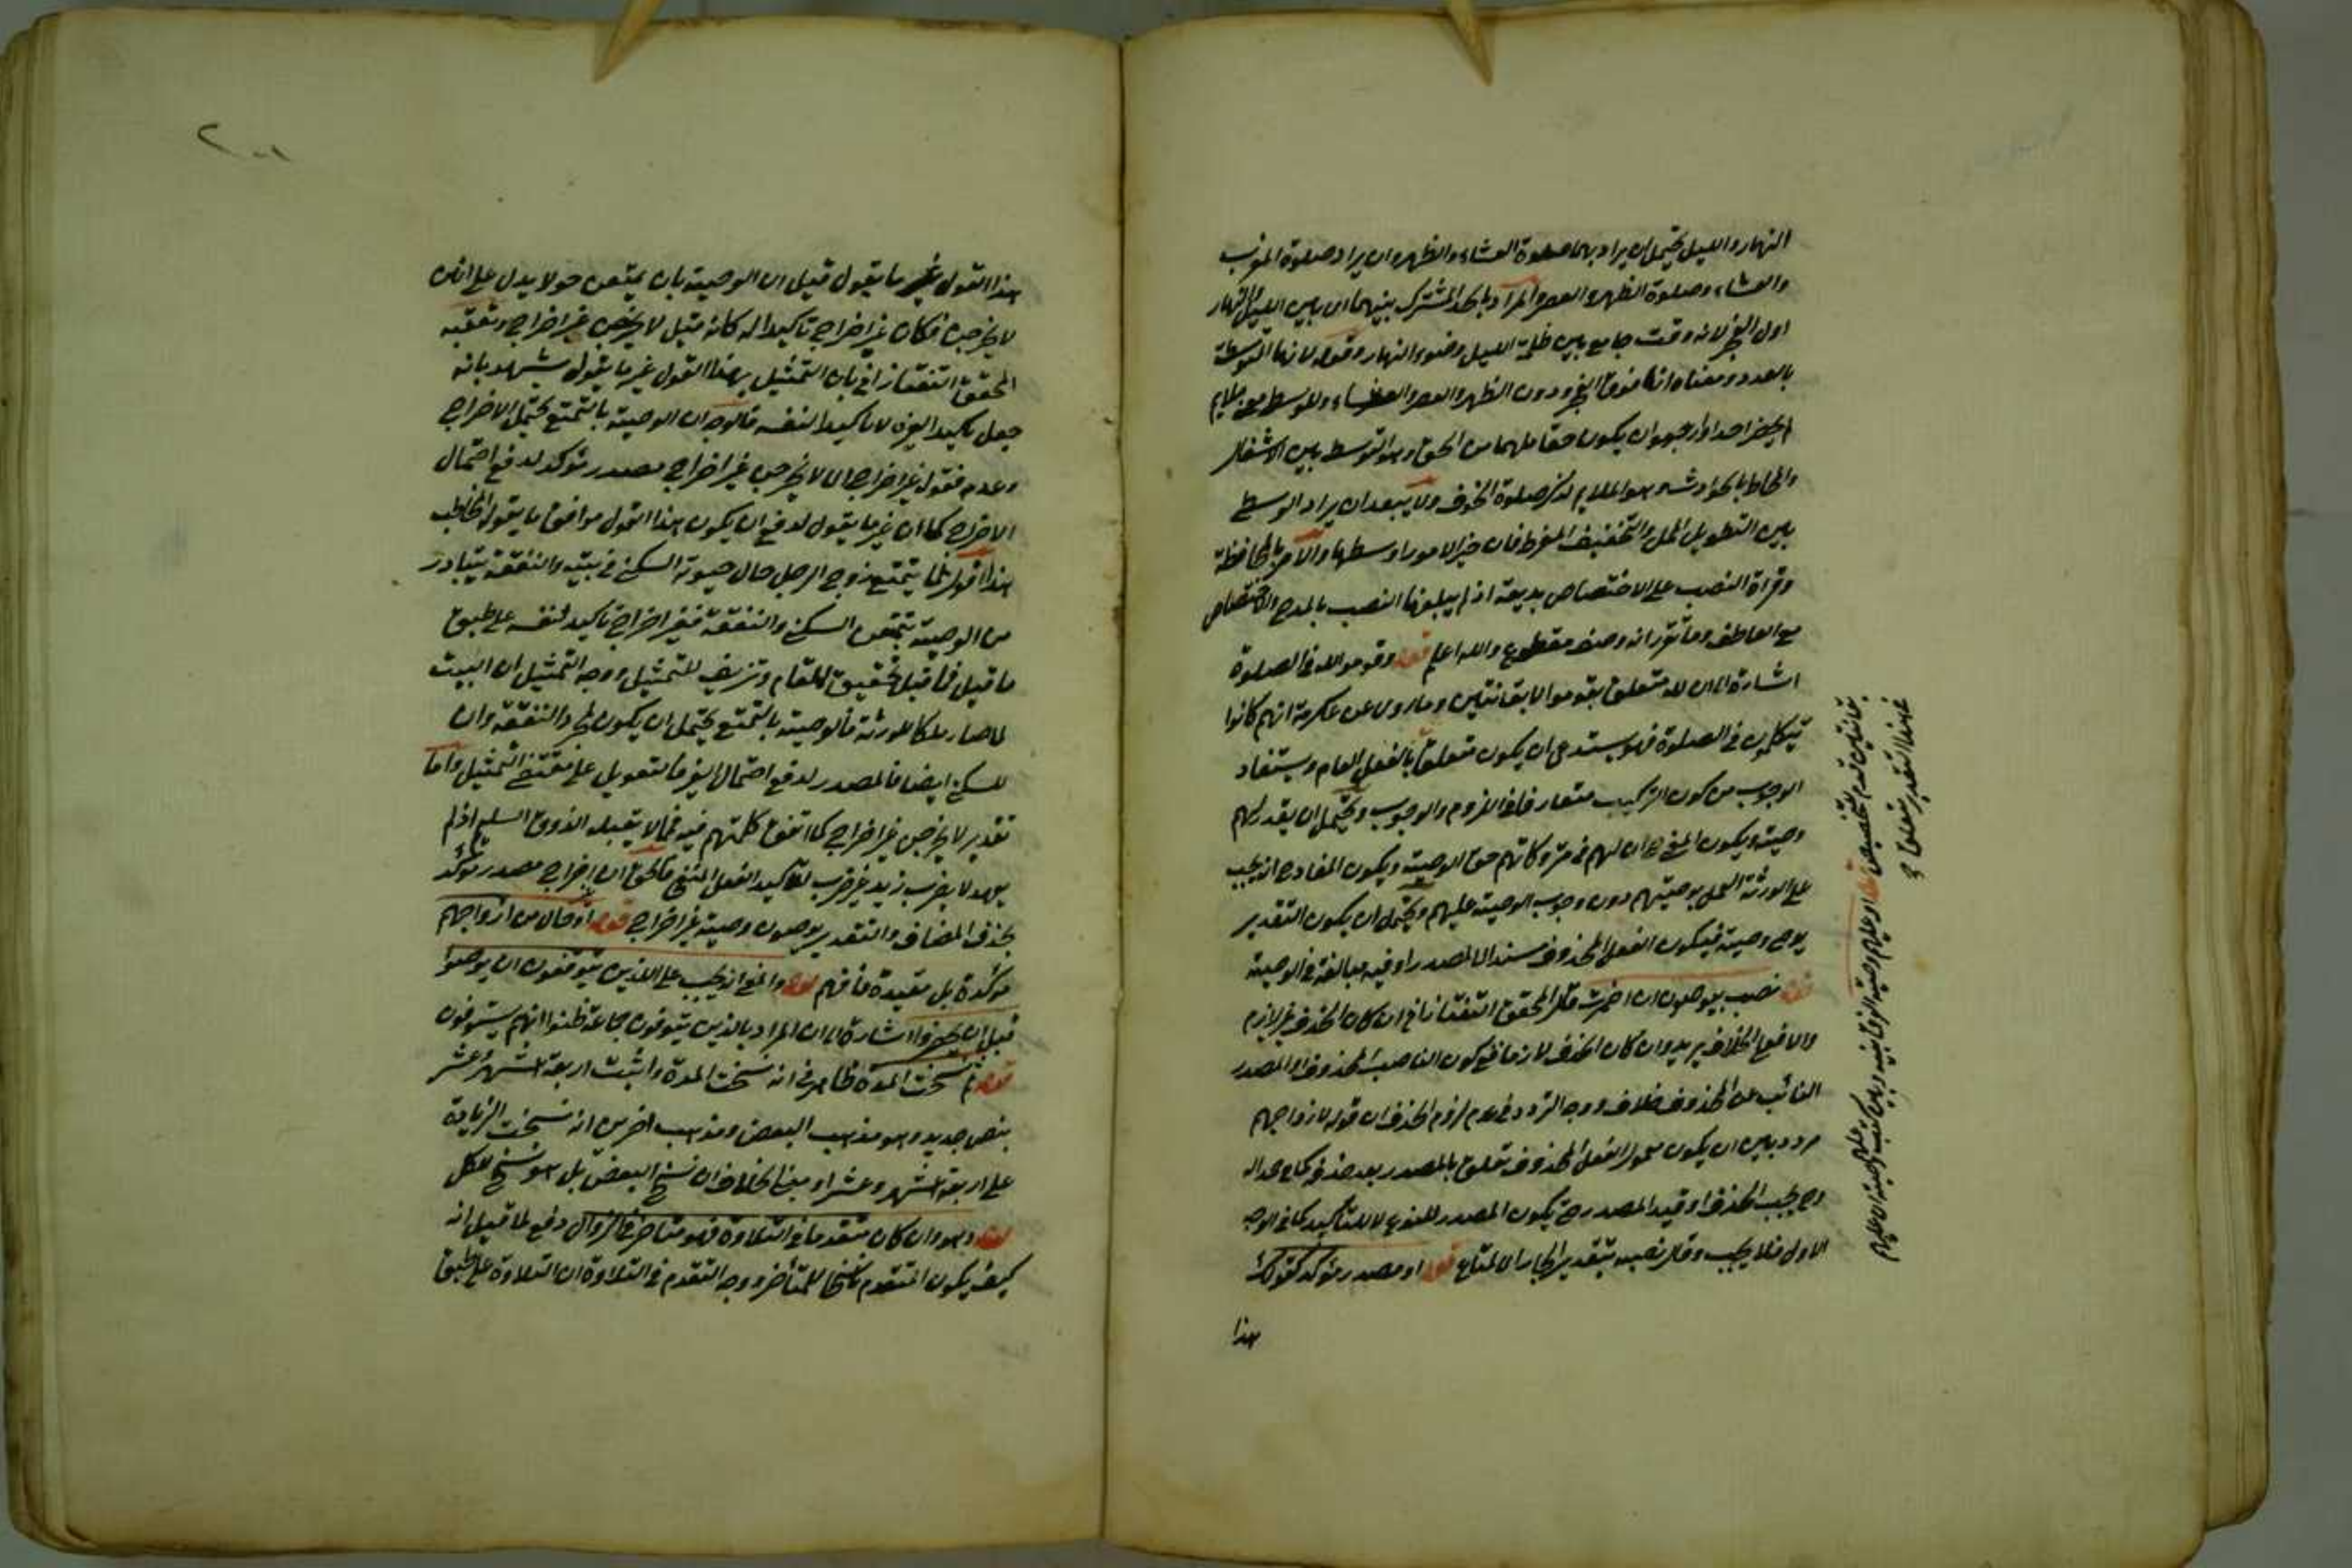 النهار والليل يحتمل ان يراد بهما صلوة العشاء والظهر وان يراد صلوة المغرب
والعشاء وصلوة الظهر والعصر والمراد بالحد المشترك بينهما اى بين الليل والنهار
اول الفجر لانه وقت جامع بين ظلمة الليل وضوء النهار وقوله لانها المتوسطة
بالعدد ومعناه انها فوق الفجر ودون الظهر والعصر والعشاء
ان يكون من الحق وهو التوسط بين
وهو الملايم لذكر صلوة الخوف ولا يبعد ان يراد الوسطى
بين التطويل الممل والتخفيف المفرط فان خير الامور اوسطها والامر بالمحافظة
وقراة النصب على الاختصاص بديعة اذ لم يبلغنا النصب بالمدح والاختصاص
مع العاطف وما تقرر انه وصف مقطوع والله اعلم قوله وقوموا لله فى الصلوة
اشارة الى ان لله متعلق بقوموا لا بقانتين وما روى عن عكرمة انهم كانوا
يتكلمون فى الصلوة فهو يستدعى ان يكون متعلق بالفعل العام ويستفاد
الوجوب من كون التركيب متعارفا فى اللزوم والوجوب ويحتمل ان يقدر لهم
وصية ويكون المعنى ان لهم فى متروكاتهم حق الوصية ويكون المفاد انه يجب
على الورثة العمل بوصيتهم دون وجوب الوصية عليهم ويحتمل ان يكون التقدير
يوصى وصية فيكون الفعل المحذوف مسندا الى المصدر وفيه مبالغة فى الوصية
قوله نصب بيوصون ان اضمرت قال المحقق التفتازانى ان كان الحذف غير لازم
والا فعلى الخلاف يريد وان كان الحذف لازما ففى كون الناصب المحذوف او المصدر
النائب عن المحذوف خلاف ووجه التردد فى عدم لزوم الحذف ان قوله لازواجهم
مردد بين ان يكون معمول الفعل المحذوف تعلق بالمصدر بعد حذفه كما فى حمدا له
وح يجب الحذف او قيد المصدر ح يكون المصدر للنوع لا للتأكيد كما فى الوجه
الاول فلا يجب وقال نصبه بتقدير الجار الى المتاع قوله او مصدر مؤكد كقولك
هذا
بقانتين لعدم التخصيص قوله او عليهم وصية
عليهم
هذا التقدير متعلق
٢٠١
هذا القول غير ما يقول قيل ان الوصية بان يمتعن حولا يدل على انهن
لا يخرجن فكان غير اخراج تاكيدا له كانه قيل لا يخرجن غير اخراج وتعقبه
المحقق التفتازانى بان التمثيل بهذا القول غير ما يقول يشهد بانه
جعل تاكيدا لغيره لا تاكيدا لنفسه فالوجه ان الوصية بالتمتع يحتمل الاخراج
وعدمه فقوله غير اخراج اى لا يخرجن غير اخراج مصدر مؤكد لدفع احتمال
الاخراج كما ان غير ما يقول لدفع ان يكون هذا القول موافق ما يقول المخاطب
هذا اقول لما يتمتع زوج الرجل حال حيوته السكنى فى بيته والنفقة يتبادر
من الوصية بتمتعهن السكنى والنفقة فغير اخراج تاكيد لنفسه على طبق
ما قيل فما قيل تحقيق للمقام وتزييف للتمثيل ووجه التمثيل ان البيت
لما صار ملكا للورثة فالوصية بالتمتع يحتمل ان يكون لمجرد النفقة وان
للسكنى ايضا فالمصدر لدفع احتمال الغير فالتعويل على مقتضى التمثيل واما
تقدير لا يخرجن غير اخراج كما اتفق كلمتهم فيه فمما لا يقبله الذوق السليم اذ لم
يعهد لا يضرب زيد غير ضرب لتاكيد الفعل المنفى فالحق ان اخراج مصدر مؤكد
بحذف المضاف والتقدير يوصون وصية غير اخراج قوله او حال من ازواجهم
مؤكدة بل مقيدة فافهم قوله والمعنى انه يجب على الذين يتوفون ان يوصوا
قبل ان يحتضروا اشارة الى ان المراد بالذين يتوفون جماعة ظنوا انهم يتوفون
قوله ثم نسخت المدة ظاهر فى انه نسخت المدة واثبت اربعة اشهر وعشر
بنص جديد وهو مذهب البعض ومذهب اخرين انه نسخت الزيادة
على اربعة اشهر وعشر او مبنى الخلاف ان نسخ البعض بل هو نسخ للكل
قوله وهو وان كان متقدما فى التلاوة فهو متاخر فى النزول دفع لما قيل انه
كيف يكون المتقدم ناسخا للمتأخر ووجه التقدم فى التلاوة ان التلاوة على طبق